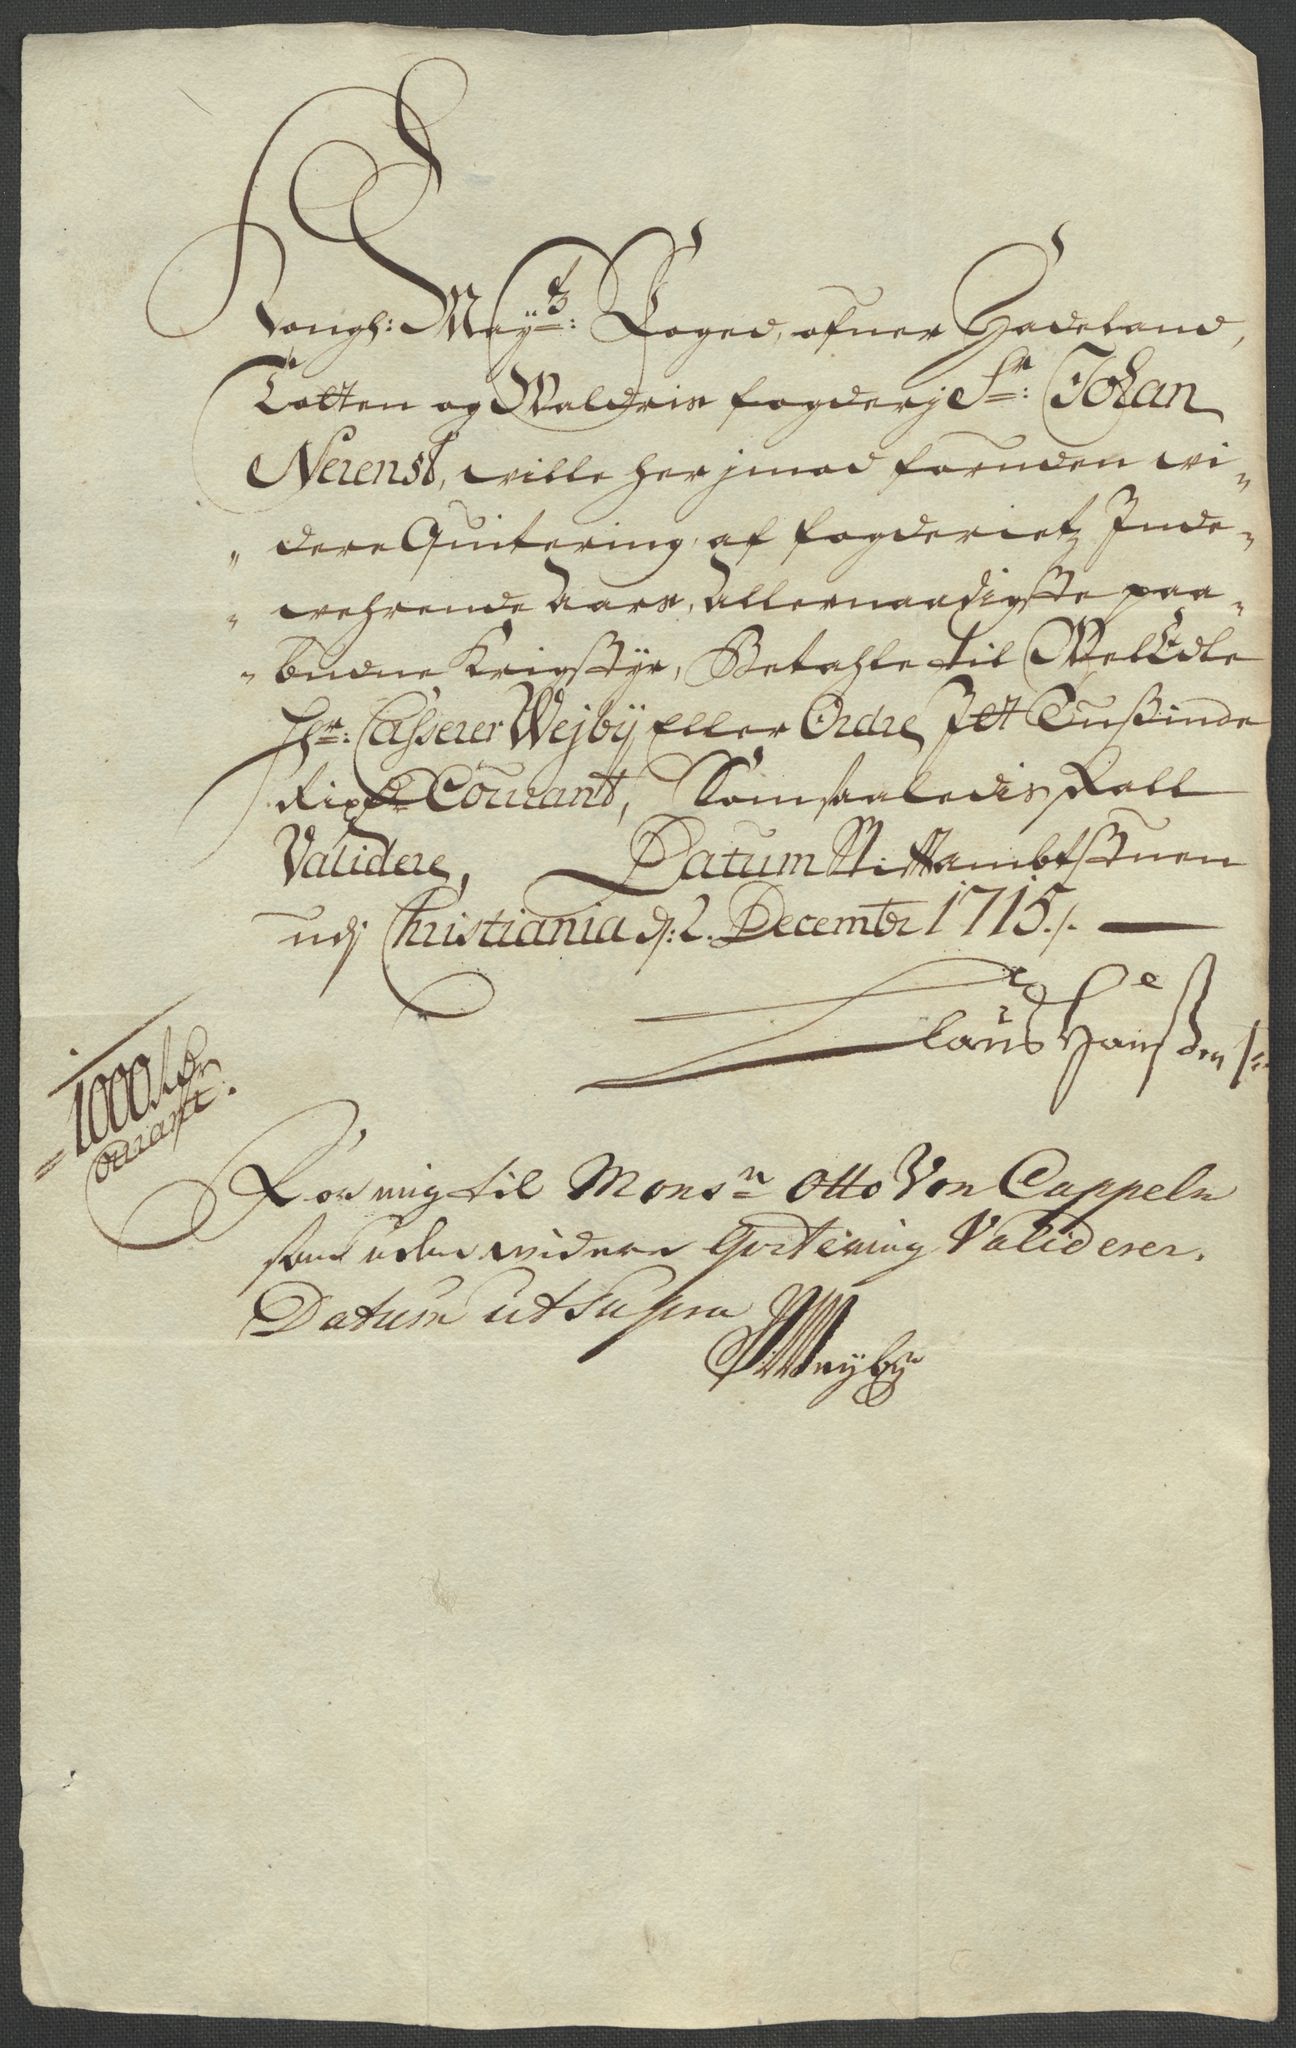 Kongh: May:tz: Foged, ofver Hadeland,
Totten og Waldris fogderj Sr: Johan
Neienst, wille her jmod foruden wi-
dere Quitering, af fogderietz Inde-
wehrende Aars, Allernaadigste paa-
budne Krigstyr, Betahle til WelEdle
Hr: Casserer Wejby Eller Ordre Jet Tusinde
Rixdr Courant, Som saaledis skall
Validere, Datum Stiftambtstuen
udj Christiania d: 2. December 1715./.
Claus Hansen
1000 Rdr
Courant.
For mig til Monsr Otto Von Cappeln
som uden widere Qvitering Validerer.
Datum ut supra
Weyby